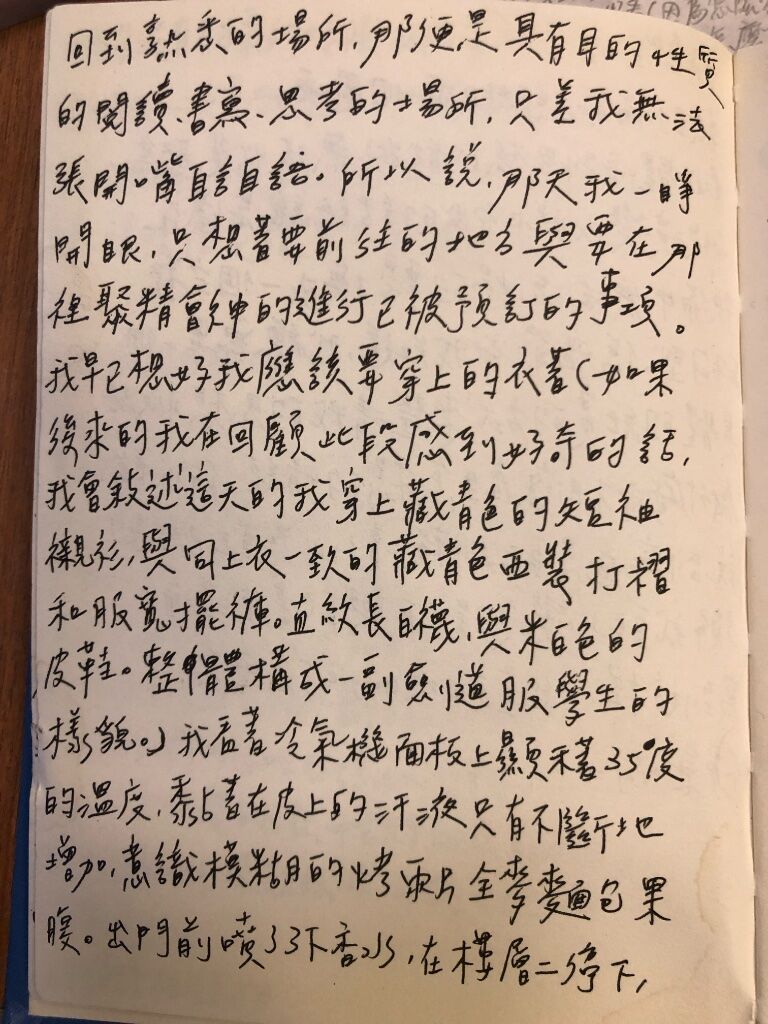 回到熟悉的場所，那便是具有目的性質
的閱讀、書寫、思考的場所，只差我無法
張開嘴自言自語。所以說，那天我一睜
開眼，只想著要前往的地方與要在那
裡聚精會神的進行已被預訂的事項。
我早已想好我應該要穿上的衣著（如果
後來的我在回顧此段感到好奇的話，
我會敘述這天的我穿上藏青色的短袖
襯衫，與同上衣一致的藏青色西裝打褶
和服寬擺褲。直紋長白襪，與米白色的
皮鞋。整體構成一副劍道服學生的
樣貌。）我看著冷氣機面板上顯示著35°度
的溫度，黏著在皮上的汗液只有不斷地
增加，意識模糊的烤兩片全麥麵包果
腹。出門前噴了3下香水，在樓層二停下，